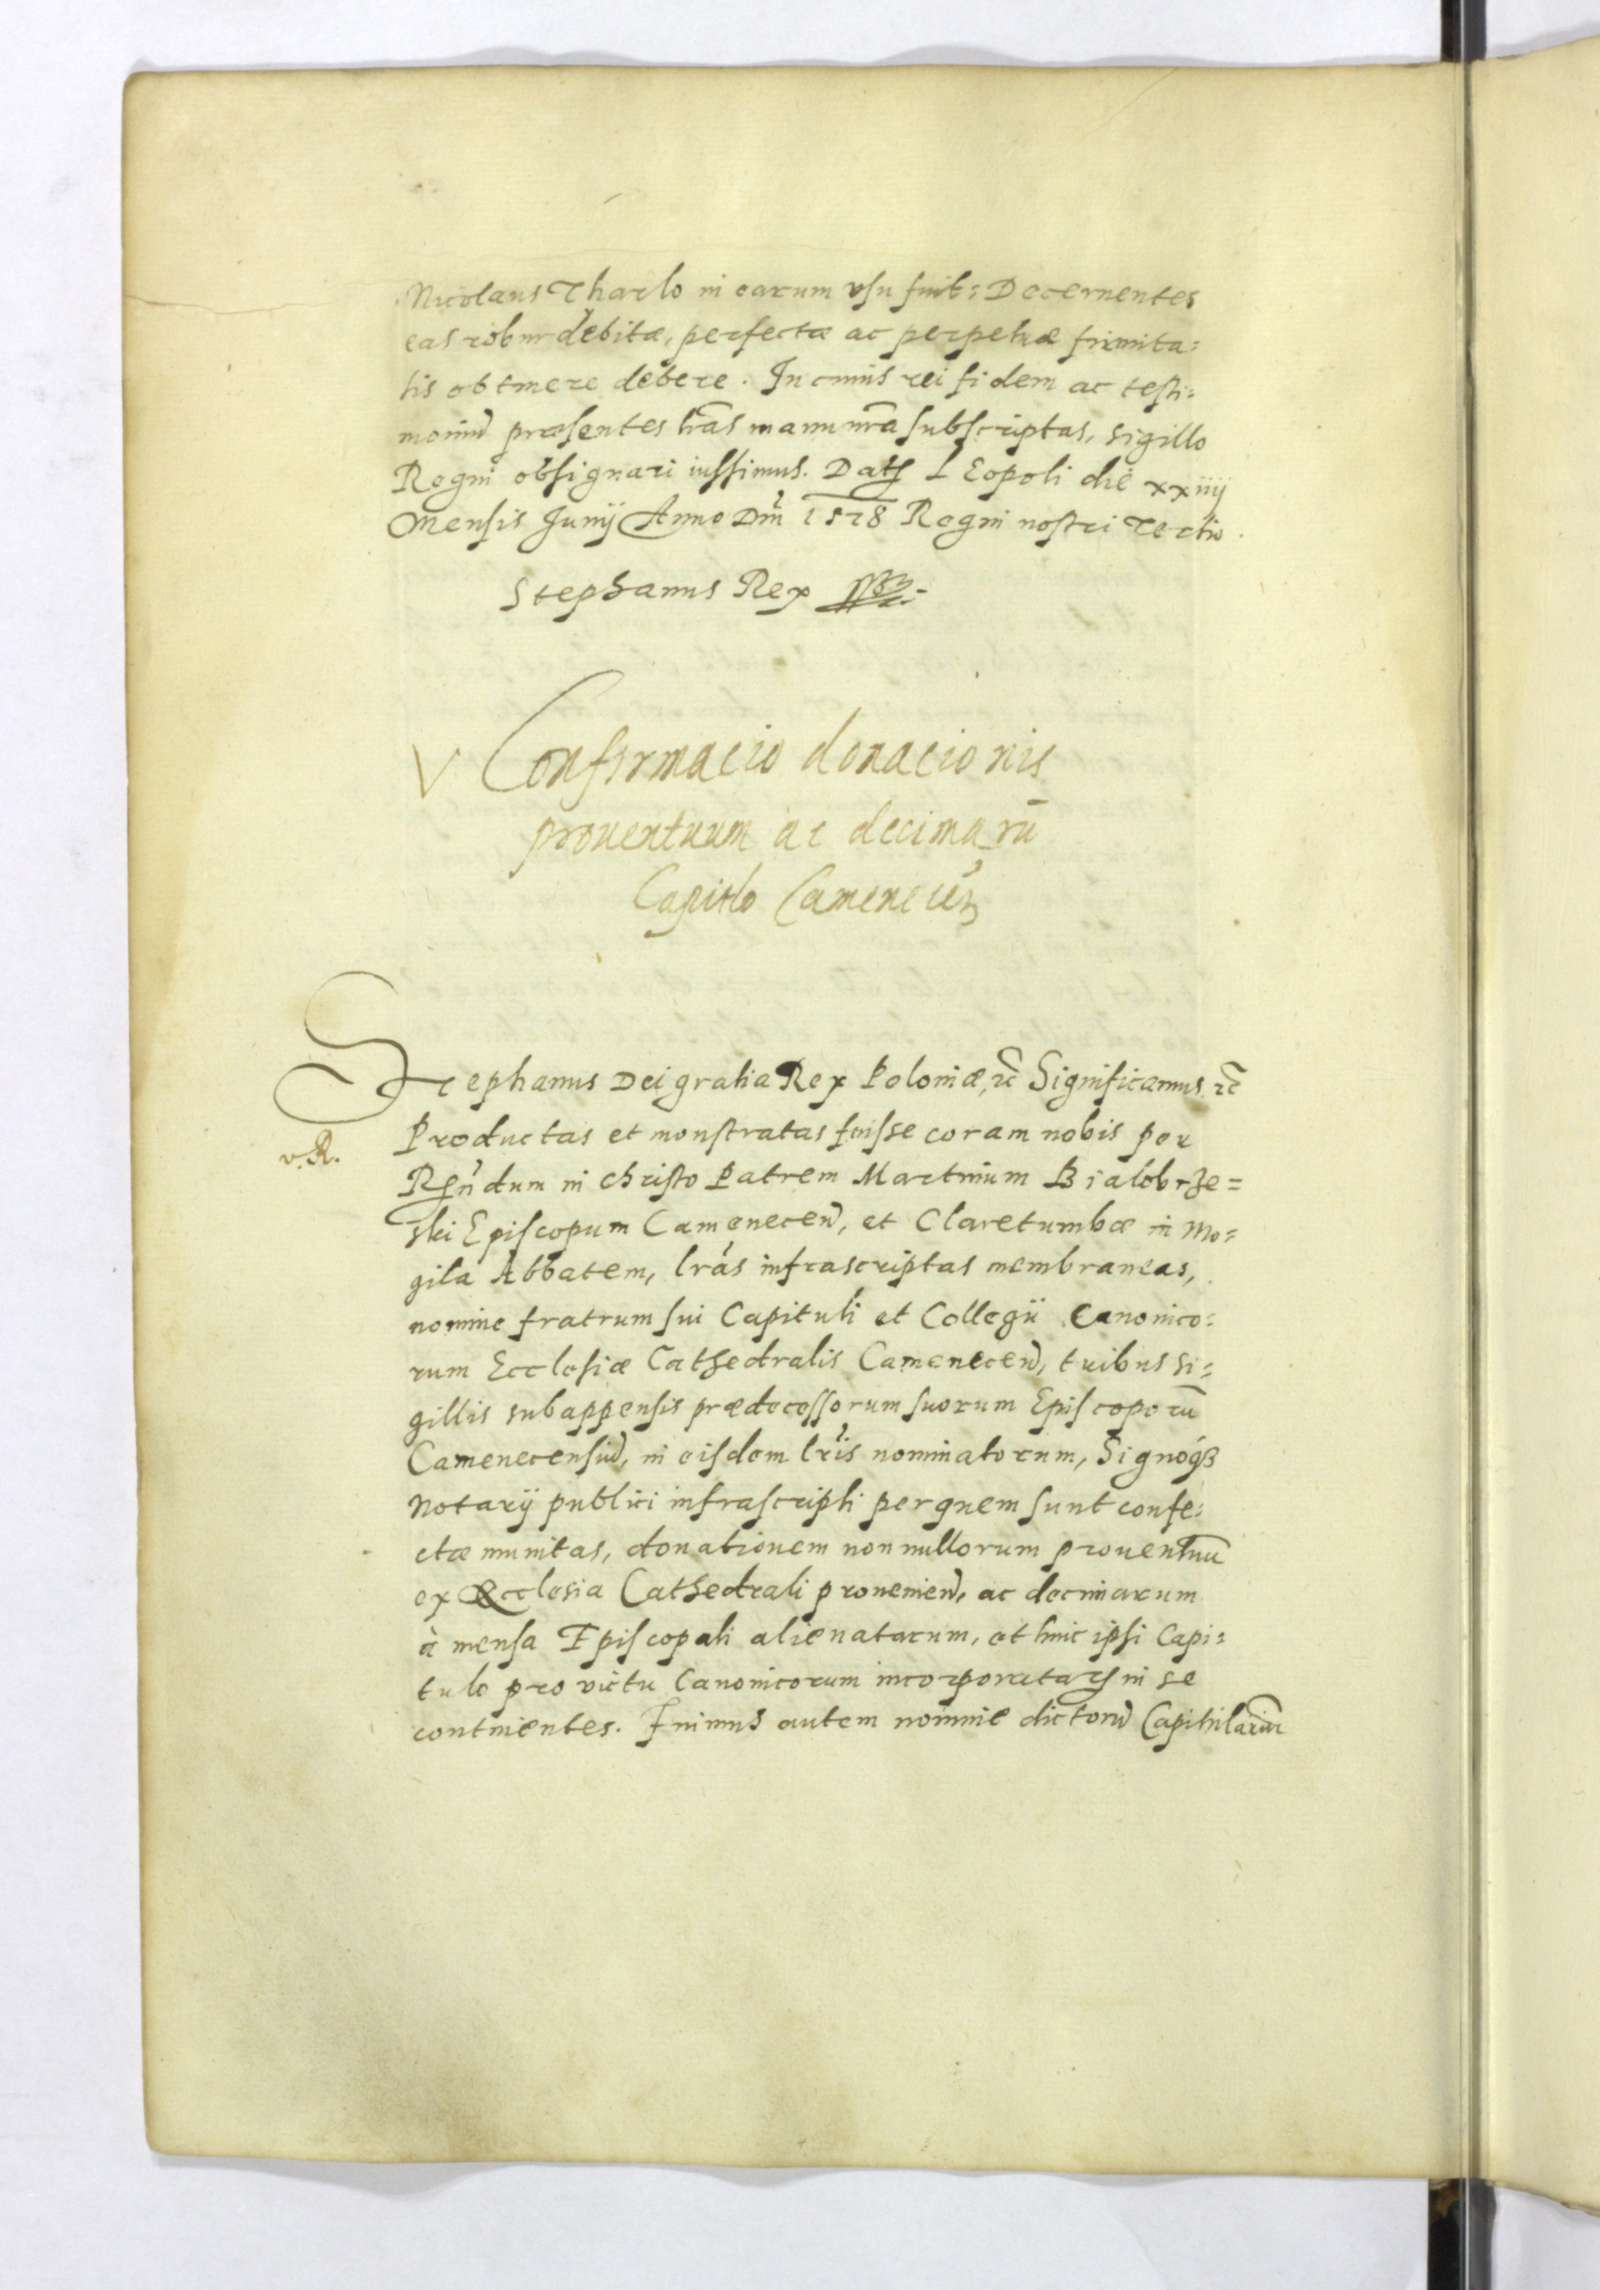 Nicolaus Tharlo in earum vsu fuit: Decernentes
eas robur debitæ, perfectæ ac perpetuæ firmita=
tis obtinere debere. In cuius rei fidem ac testi=
moniũ præsentes lrãs manu nrã subscriptas, sigillo
Regni obsignari iussimus. Dat Leopoli die xxiiij
Mensis Junij Anno Dni 1578 Regni nostri Tertio.
Stephanus Rex
V Confirmacio donacionis
prouentuum ac decimarũ
Capitlo Camenecen
Stephanus Dei gratia Rex Poloniæ, etc̃ Significamus etc̃
v. R. Productas et monstratas fuisse coram nobis per
Rendum in Christo Patrem Martinum Bialobrze=
ski Episcopum Camenecen, et Claretumbæ in Mo=
gila Abbatem, lras infrascriptas membraneas,
nomine fratrum sui Capituli et Collegii Canonico=
rum Ecclesiæ Cathedralis Camenecen, tribus si=
gillis subappensis prædecessorum suorum Episcoporũ
Camenecensiũ, in eisdem lris nominatorum, Signoq3
Notarij publici infrascripti per quem sunt confe=
ctæ munitas, donationem nonnullorum prouentuũ
ex Ecclesia Cathedrali prouenien, ac decimarum
à mensa Episcopali alienatarum, et huic ipsi Capi=
tulo pro victu Canonicorum incorporatar in se
continentes. Fuimus autem nomine dictorũ Capitulariũ